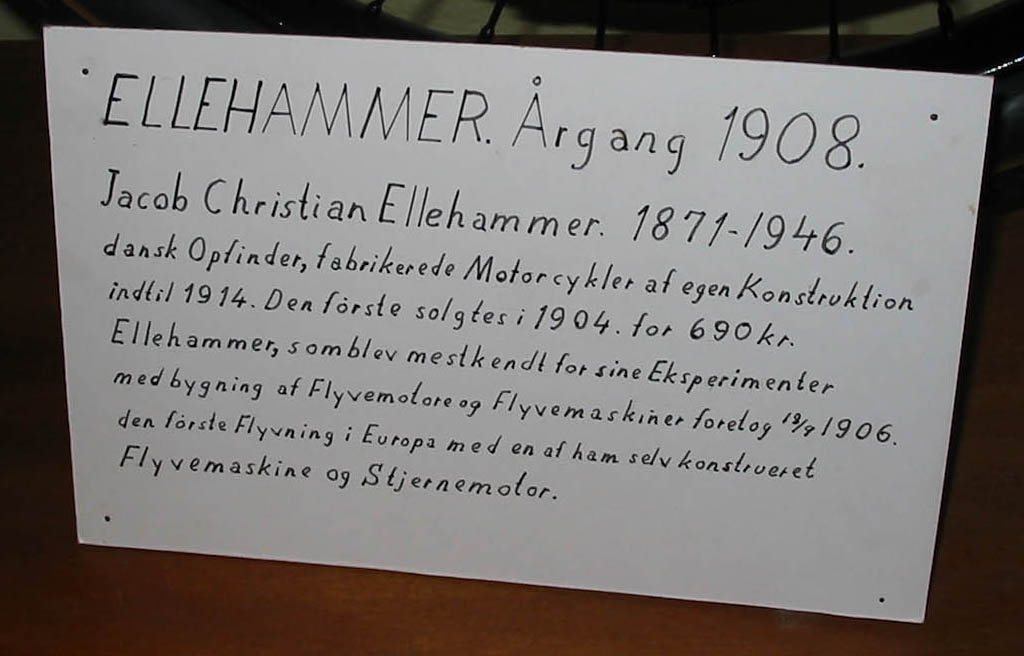 ELLEHAMMER. Årgang 1908.
Jacob Christian Ellehammer. 1871-1946.
dansk Opfinder, fabrikerede Motorcykler af egen Konstruktion
indtil 1914. Den förste solgtes i 1904. for 690 kr.
Ellehammer, som blev mest kendt for sine Eksperimenter
med bygning af Flyvemotore og Flyvemaskiner foretog 12/9 1906.
den förste Flyvning i Europa med en af ham selv konstrueret
Flyvemaskine og Stjernemotor.